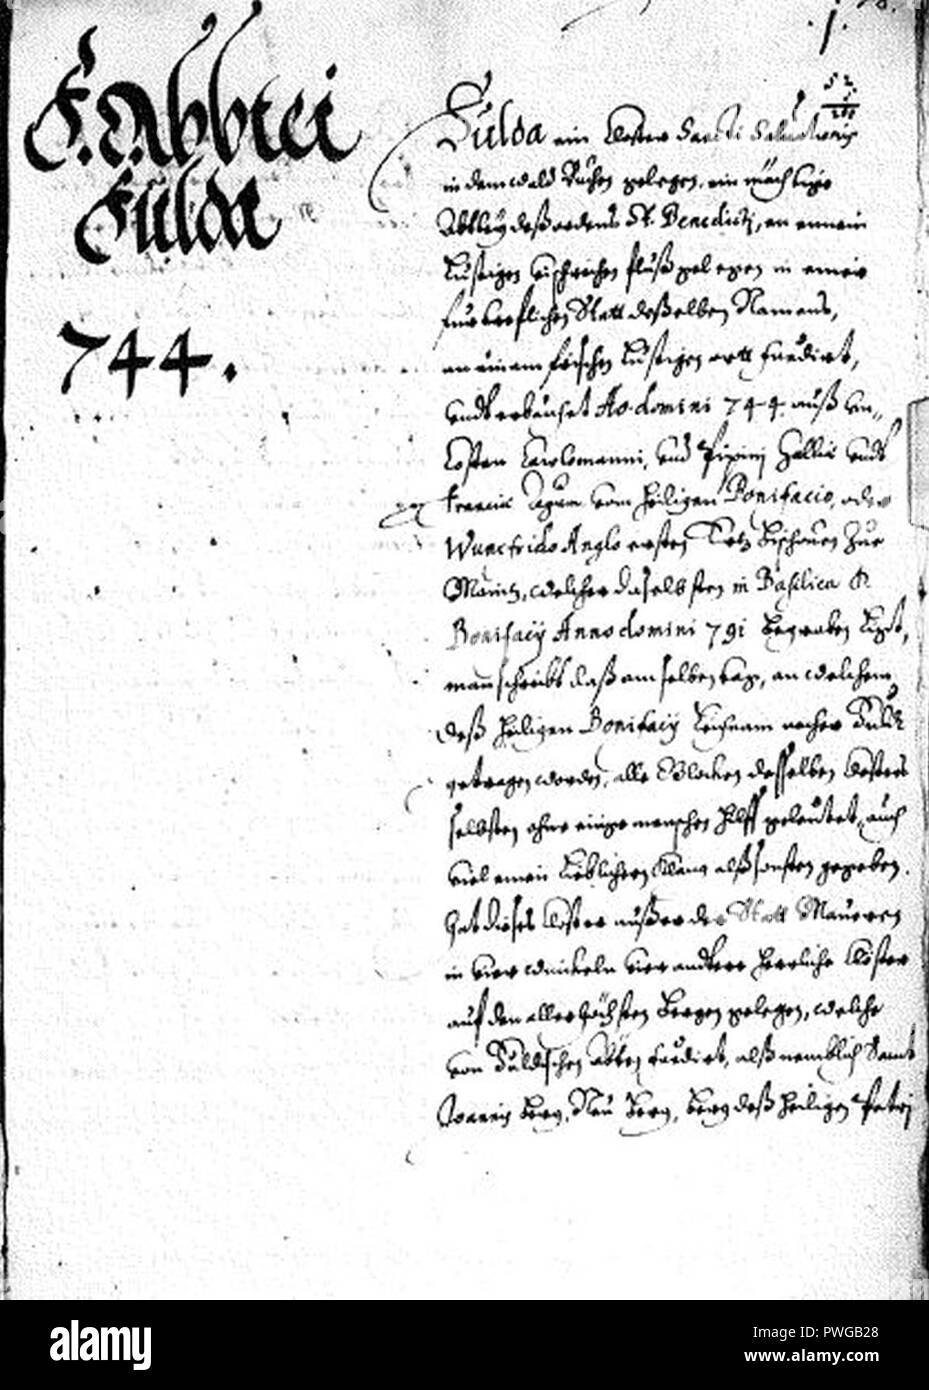 1.
F. Abbtei
Fulda
744.
52.
Fulda ein Closter Sancti Saluatoris
in dem wald Buchen gelegen, ein mächtige
Abbtey deß ordens St. Benedicti, an einem
Lustigen fischreichen fluß gelegen in einer
furtreflichen Statt deßelben Namens,
an einem frischen Lustigen ortt fundirt,
vndt erbauhet Ao. domini 744 auß Vn„
Costen Carlomanni, und Pipini Galliæ vndt
Franciæ Regum vom heiligen Bonifacio, oder
Wunefrido Anglo ersten Ertz Bischouen Zue
Maintz, welcher daselbsten in Basilica S.
Bonifacij Anno domini 791 begraben Ligt,
mann schreibt daß am selben tag, an welchem
deß heiligen Bonifacij Leichnam nacher Fuld
getragen worden, alle Glocken desselben Closters
selbsten ohne einige menschen hilff geleutet, auch
viel einen Lieblichern Klang alß sonsten gegeben.
hat dieses Closter außer der Statt Mauren
in vier winckeln vier andere herrliche Clöster
auf den aller höchsten Bergen gelegen, welche
von Fuldischen abten fundirt, alß nemblich Sanct
Joannis berg, Neu berg, berg deß heiligen Petri
alamy
Image ID: PWGB28
www.alamy.com